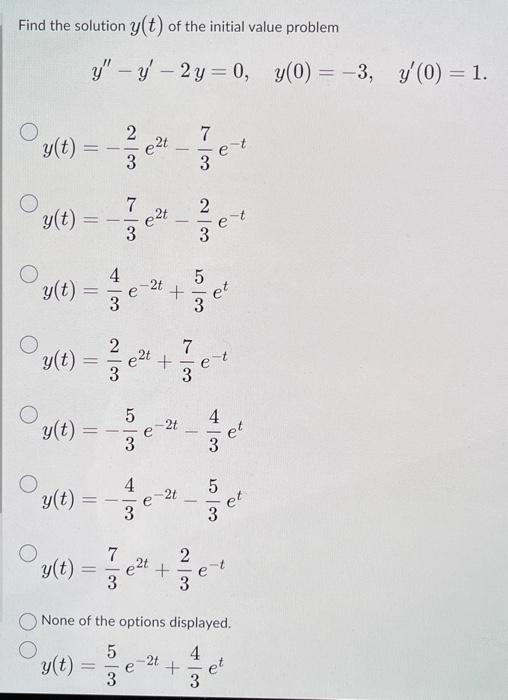 Find the solution y(t) of the initial value problem
y'' − y' − 2 y = 0, y(0) = −3, y'(0) = 1.
y(t) = −2/3 e^{2t} − 7/3 e^{−t}
y(t) = −7/3 e^{2t} − 2/3 e^{−t}
y(t) = 4/3 e^{−2t} + 5/3 e^{t}
y(t) = 2/3 e^{2t} + 7/3 e^{−t}
y(t) = −5/3 e^{−2t} − 4/3 e^{t}
y(t) = −4/3 e^{−2t} − 5/3 e^{t}
y(t) = 7/3 e^{2t} + 2/3 e^{−t}
None of the options displayed.
y(t) = 5/3 e^{−2t} + 4/3 e^{t}